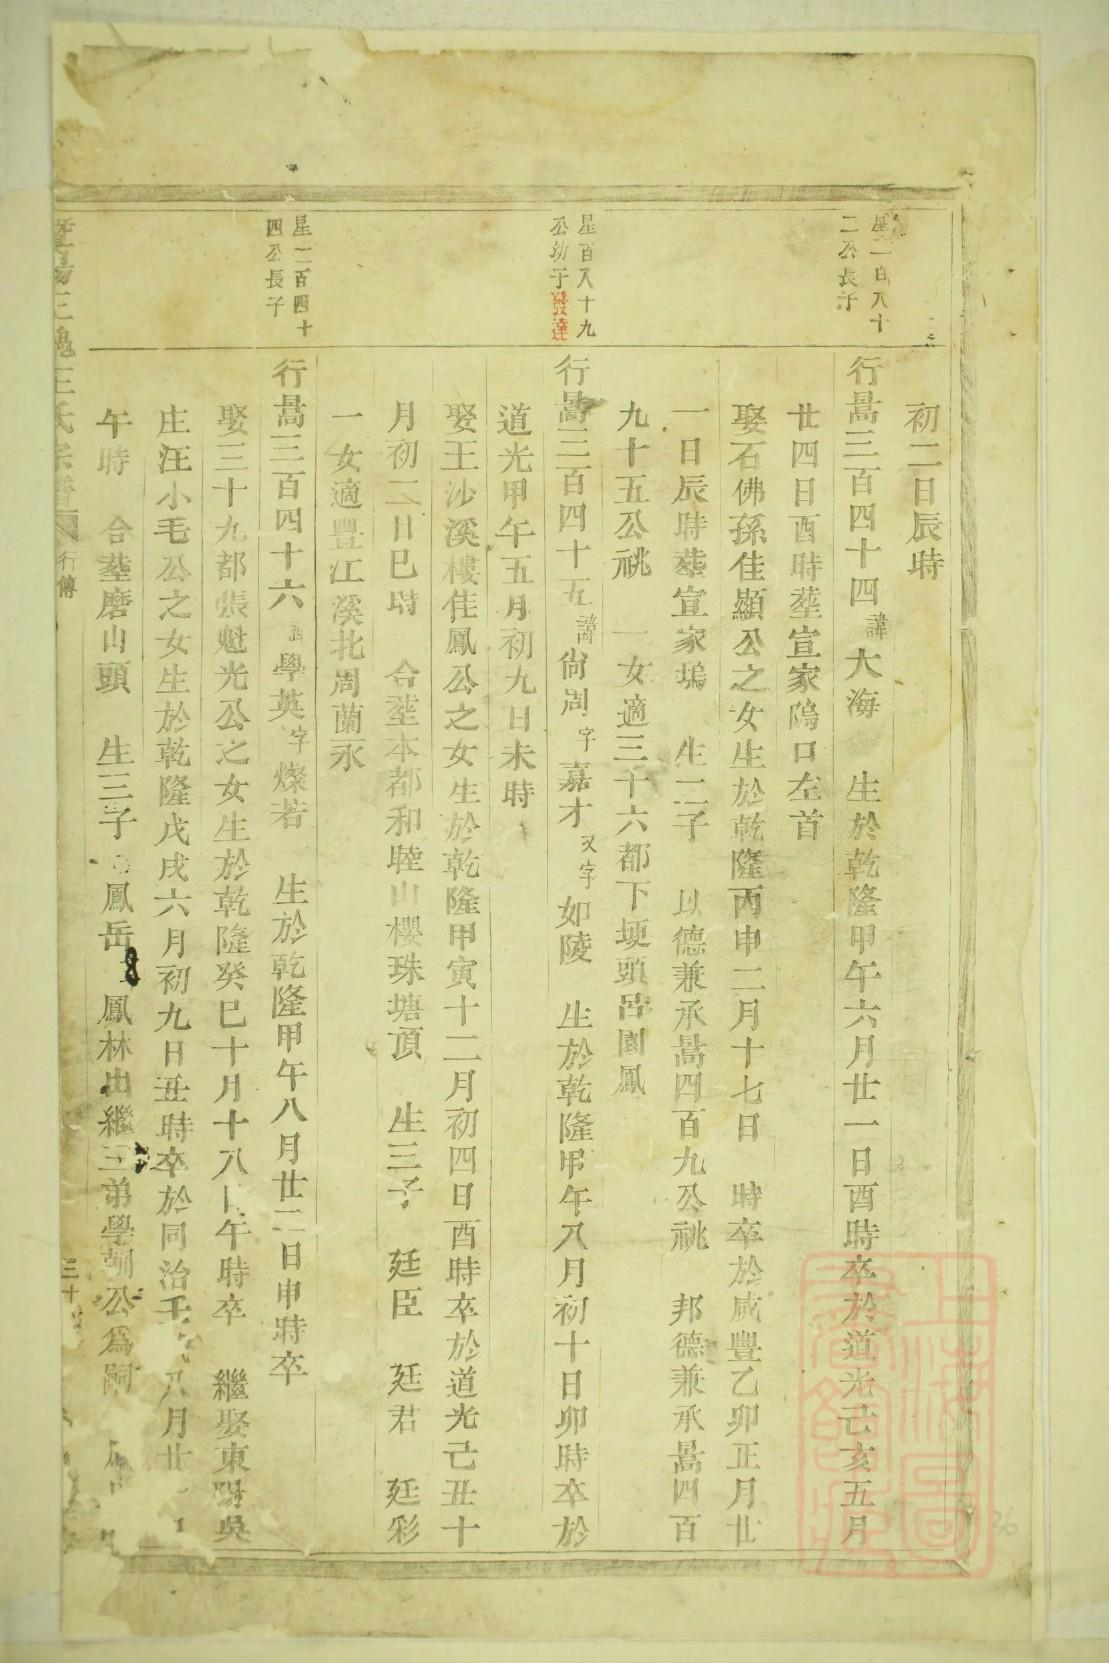 初二日辰時
星一百八十
二公長子
行暠三百四十四諱大海　生於乾隆甲午六月廿一日酉時卒於道光己亥五月
廿四日酉時塟宣家隖口左首
娶石佛孫佳顯公之女生於乾隆丙申二月十七日　時卒於咸豐乙卯正月廿
一日辰時塟宣家塢　生二子　以德兼承暠四百九公祧　邦德兼承暠四百
九十五公祧　一女適三十六都下埂頭呂園鳳
星百八十九
公幼子發達
行暠三百四十五諱尙周字嘉才又字如陵　生於乾隆甲午八月初十日卯時卒於
道光甲午五月初九日未時
娶王沙溪樓佳鳳公之女生於乾隆甲寅十二月初四日酉時卒於道光己丑十
月初二日巳時　合塟本都和睦山櫻珠塘頂　生三子　廷臣　廷君　廷彩
一女適豐江溪北周蘭永
星二百四十
四公長子
行暠三百四十六諱學英字燦若　生於乾隆甲午八月廿二日申時卒
娶三十九都張魁光公之女生於乾隆癸巳十月十八日午時卒　繼娶東陽吳
庄汪小毛公之女生於乾隆戊戌六月初九日丑時卒於同治壬八月廿
午時　合塟磨山頭　生三子　鳳岳　鳳林出繼三弟學朝公爲嗣
暨陽三槐王氏宗譜
行傳
三十
上海圖書館藏
36